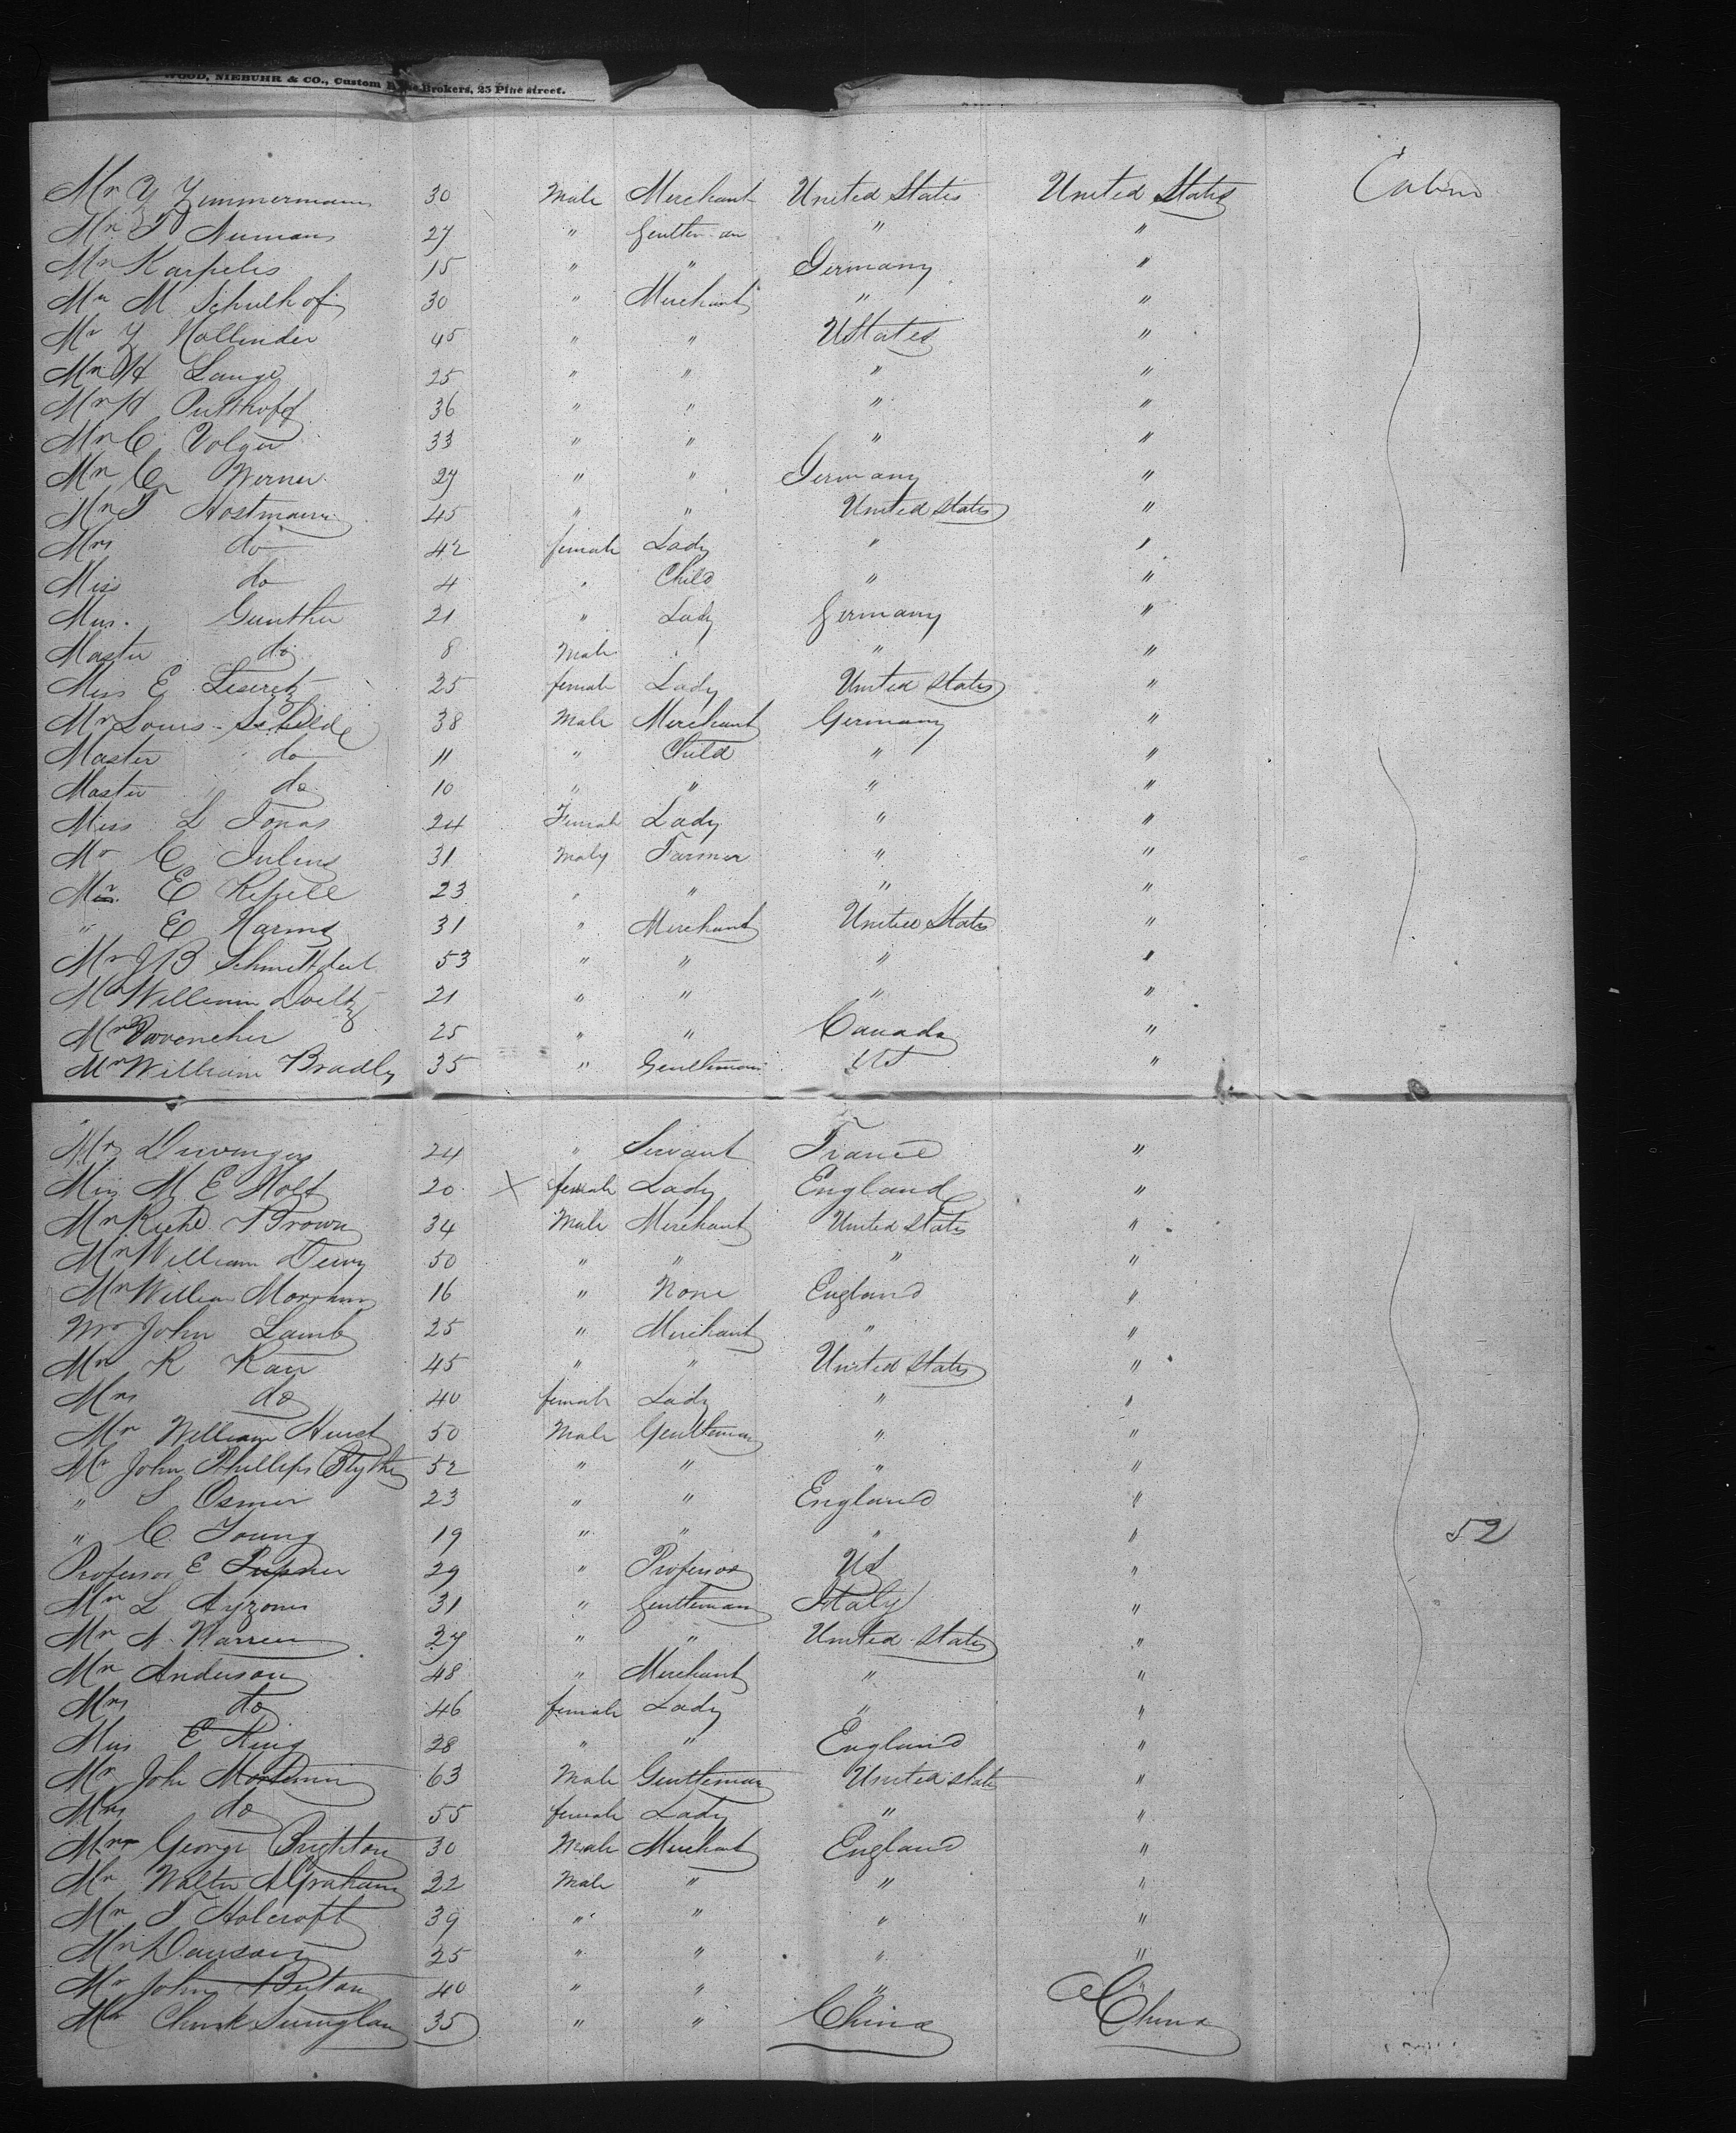 WOOD, NIEBUHR & CO., Custom Brokers, 25 Pine street.
Mr Y Zimmermann 30 Male Merchant United States United States Cabin
Mr F Numans 27 " Gentleman " "
Mr Karpeles 15 " " Germany "
Mr M Schulhof 30 " Merchant " "
Mr Y Hollinder 45 " " UStates "
Mr H Lange 25 " " " "
Mr H Putthoff 36 " " " "
Mr C Volger 33 " " " "
Mr C Werner 27 " " Germany "
Mr F Hostmann 45 " " United States "
Mrs do 42 female Lady " "
Miss do 4 " Child " "
Mrs. Gunther 21 " Lady Germany "
Master do 8 Male " " "
Miss E 25 female Lady United States "
Mr Louis Schilde 38 Male Merchant Germany "
Master do 11 " Child " "
Master do 10 " " " "
Miss L Jonas 24 Female Lady " "
Mr C Julius 31 Male Farmer " "
Mr E 23 " " " "
" E Harms 31 " Merchant United States "
Mr J B 53 " " " "
Mr William 21 " " " "
Mr Provencher 25 " " Canada "
Mr William Bradly 35 " Gentleman US "
Mr 24 " Servant France "
Miss M E Holt 20 X female Lady England "
Mr Richd Brown 34 Male Merchant United States "
Mr William Dewy 50 " " " "
Mr William 16 " None England "
Mr John Lamb 25 " Merchant " "
Mr K Karr 45 " " United States "
Mrs do 40 female Lady " "
Mr William Hurst 50 Male Gentleman " "
Mr John Phillips Blythe 52 " " " "
" S Osmer 23 " " England "
" C Young 19 " " " "
Professor E 29 " Professor US "
Mr L 31 " Gentleman Italy "
Mr A. Warren 27 " " United States "
Mr Anderson 48 " Merchant " "
Mrs do 46 female Lady " "
Miss E King 28 " " England "
Mr John 63 Male Gentleman United States "
Mrs do 55 female Lady " "
Mr George Brighton 30 Male Merchant England "
Mr Walter A Graham 32 Male " " "
Mr T Holcroft 39 " " " "
Mr Dawson 25 " " " "
Mr John 40 " " " "
Mr 35 " " China China
52